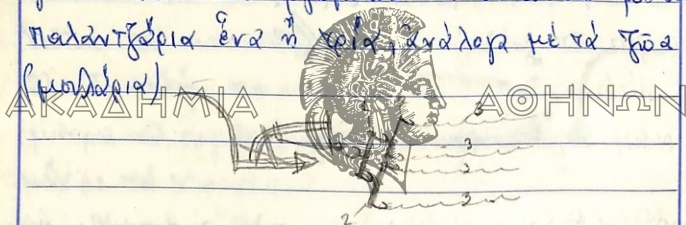 παλαντζάρια ἕνα ἤ τρία, ἀνάλογα μέ τά ζῶα
(μουλάρια)
ΑΚΑΔΗΜΙΑ ΑΘΗΝΩΝ
3
3
3
3
2